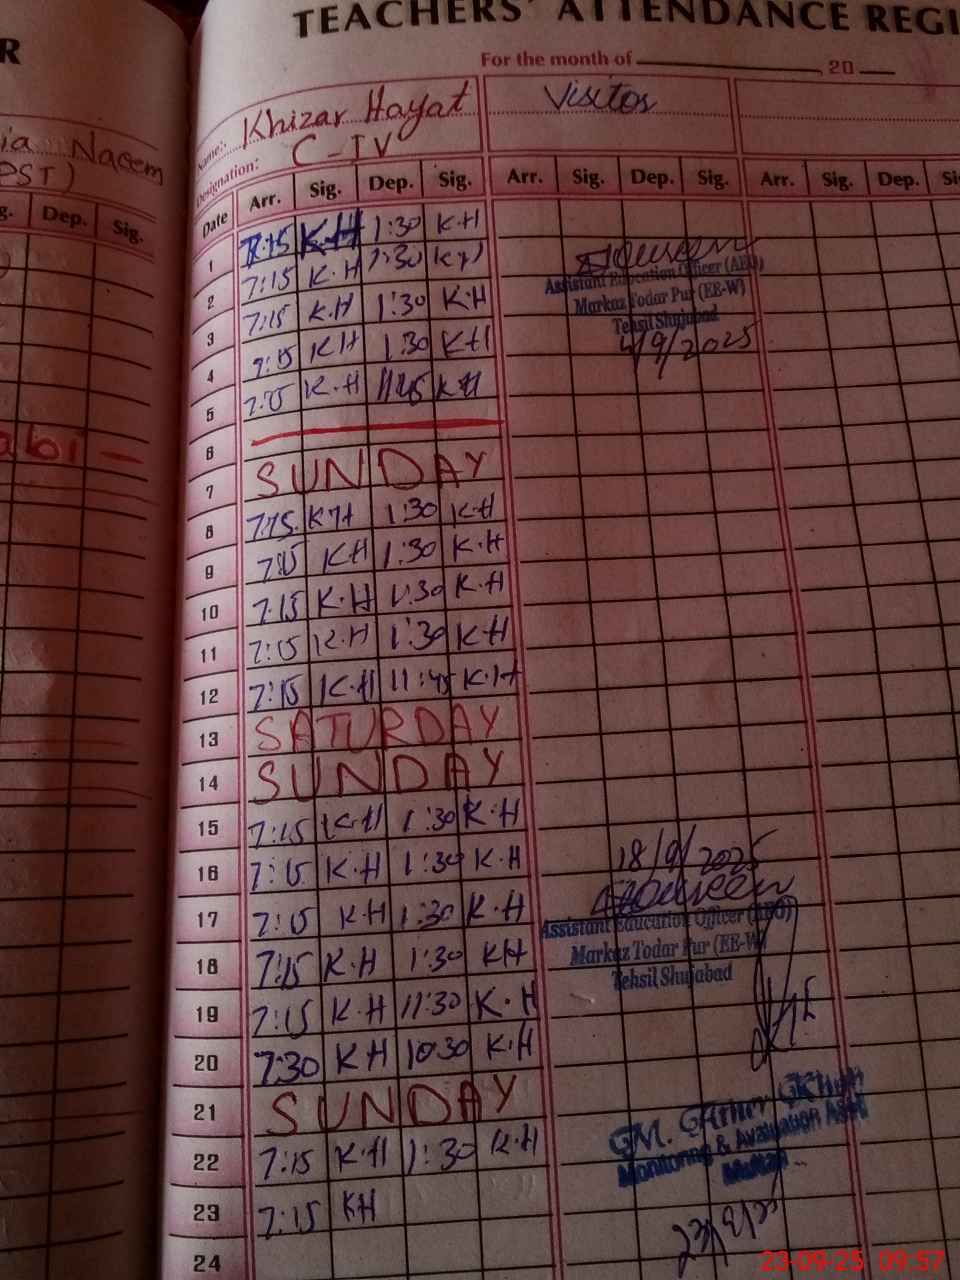 R
TEACHERS' ATTENDANCE REGI
For the month of 20
ia Naeem
PST)
Name: Khizar Hayat
Visitos
Designation: C-IV
g. Dep. Sig.
Date Arr. Sig. Dep. Sig. Arr. Sig. Dep. Sig. Arr. Sig. Dep. Si
1 7:15 K.H 1:30 K.H
2 7:15 K.H 1:30 K.H
3 7:15 K.H 1:30 K.H
4 7:15 KH 1:30 KH
5 7:15 K.H 11:45 KH
Assistant Education Officer (AEO)
Markaz Todar Pur (EE-W)
Tehsil Shujabad
4/9/2025
6
abi
7 SUNDAY
8 7:15 KH 1:30 K.H
9 7:15 KH 1:30 K.H
10 7:15 K.H 1:30 K.H
11 7:15 K.H 1:30 K.H
12 7:15 K.H 11:45 K.H
13 SATURDAY
14 SUNDAY
15 7:15 K.H 1:30 K.H
16 7:15 K.H 1:30 K.H
17 7:15 K.H 1:30 K.H
18 7:15 K.H 1:30 KH
18/9/2025
Assistant Education Officer (AEO)
Markaz Todar Pur (EE-W)
Tehsil Shujabad
19 7:15 K.H 11:30 K.H
20 7:30 KH 10:30 K.H
21 SUNDAY
22 7:15 K.H 1:30 K.H
23 7:15 KH
24
GM.
Monitoring & Avaluation Asstt
Multan
23/9/25
23-09-25 09:57